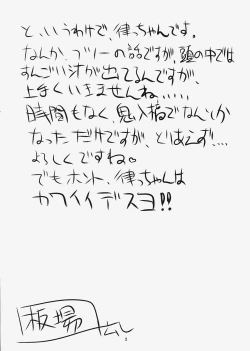 と、いうわけで、律っちゃんです。
なんか、ブルーの話ですが、頭の中では
すんごい汁が出てるんですが、
上手くいきませんね、、、、、
時間もなく、鬼入稿でなんいか
なっただけですが、とりあえず、、、、
よろしくですね。
でもホント、律っちゃんは
カワイイデスヨ!!
板場
2